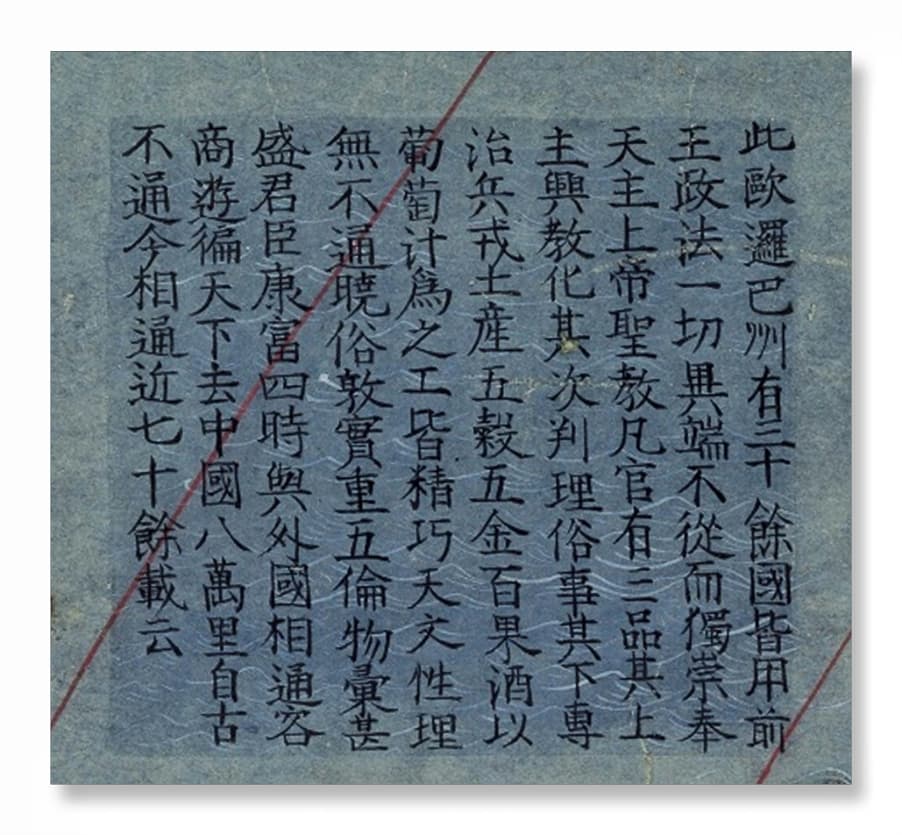 此歐邏巴州有三十餘國皆用前
王政法一切異端不從而獨崇奉
天主上帝聖教凡官有三品其上
主興教化其次判理俗事其下專
治兵戎土産五穀五金百果酒以
葡萄计爲之工皆精巧天文性理
無不通曉俗敦實重五倫物彙甚
盛君臣康富四時與外國相通客
商遊徧天下去中國八萬里自古
不通今相通近七十餘載云